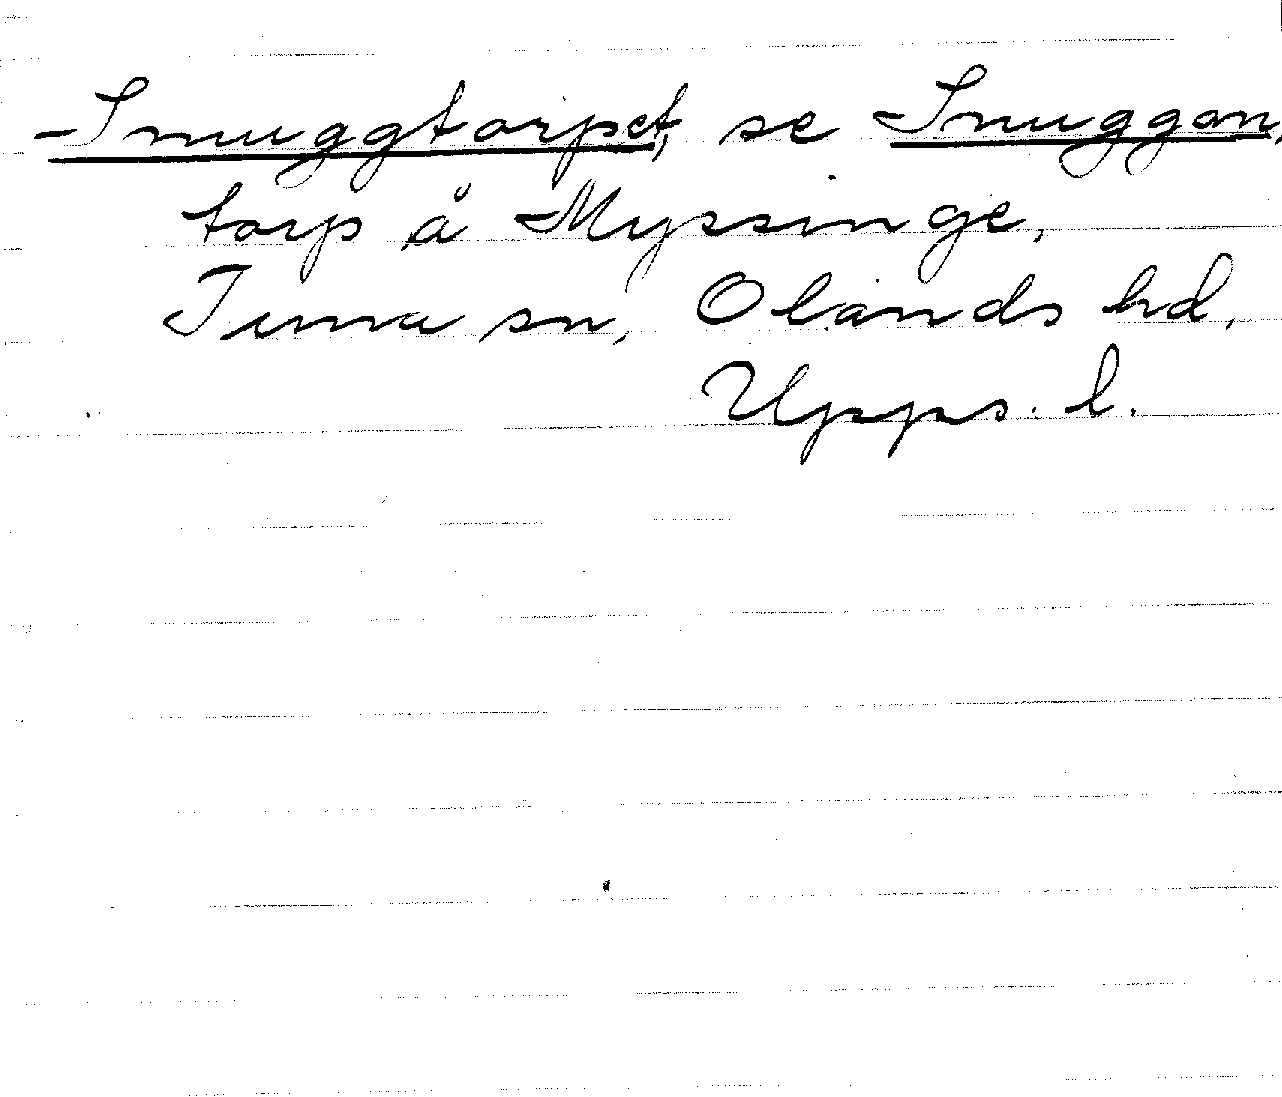 Snuggtorpet, se Snuggan,
torp å Myssinge,
Tuna sn, Olands hd,
Upps. l.